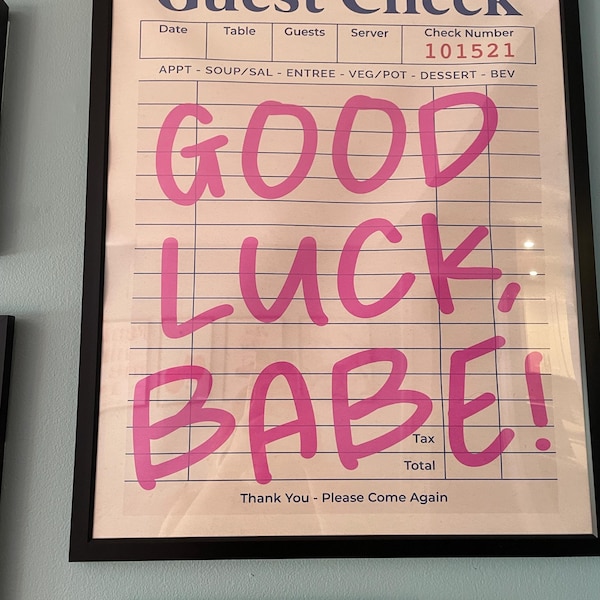 Guest Check
Date Table Guests Server Check Number
101521
APPT - SOUP/SAL - ENTREE - VEG/POT - DESSERT - BEV
GOOD
LUCK,
BABE!
Tax
Total
Thank You - Please Come Again